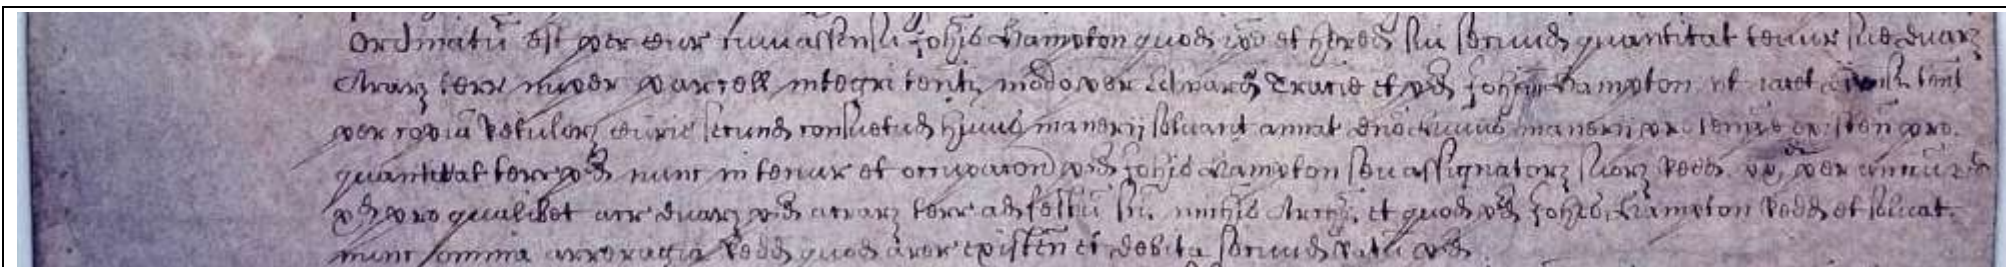 Ordinatũ est per cur cum assensu Johis Hampton quod ip̃e et hered sui secund quantitat tenur sue duarz
Acrarz terr nuper parcell integri tenti modo per Edward Tracie et pd Johem Hampton ut iacet tent
per copiã Rotulorz curie secund consuetud huius manerij solvant annat dño huius manerij pro
quantitat terr pd nunc in tenur et occupacon pd Johis Hampton seu assignatorz suorz Redd per annũ
pd pro qualibet acr duarz pd acrarz terr ad festũ Sci michis Archi, et quod pd Johes Hampton Redd et solvat
nunc omnia arreragia Redd quod a retr existen et debita secund ratũ pd